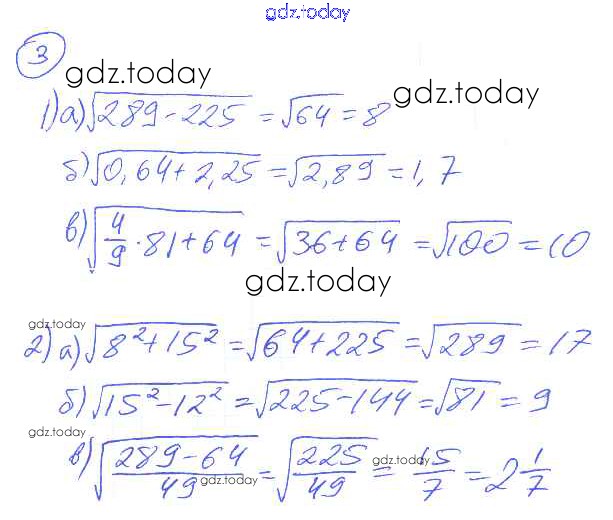 gdz.today
3
gdz.today
gdz.today
1) а) √(289 - 225) = √64 = 8
б) √(0,64 + 2,25) = √2,89 = 1,7
в) √(4/9 · 81 + 64) = √(36 + 64) = √100 = 10
gdz.today
gdz.today
2) а) √(8² + 15²) = √(64 + 225) = √289 = 17
б) √(15² - 12²) = √(225 - 144) = √81 = 9
gdz.today
в) √((289 - 64)/49) = √(225/49) = 15/7 = 2 1/7
gdz.today
gdz.today